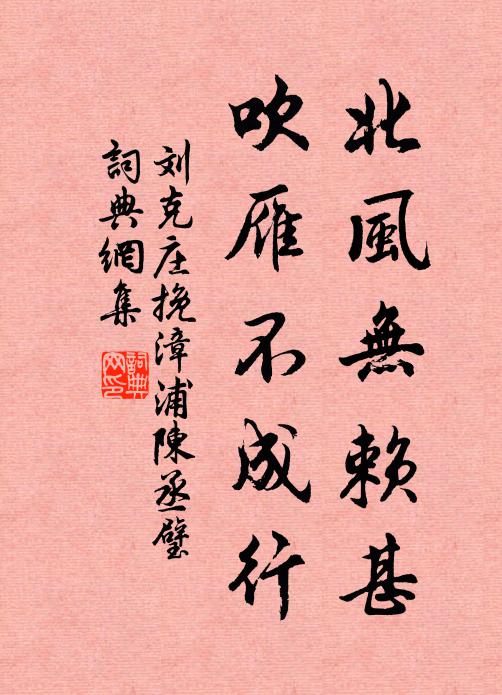 北風無賴甚
吹雁不成行
刘克庄挽漳浦陳丞璧
詞典網集
詞典
网印